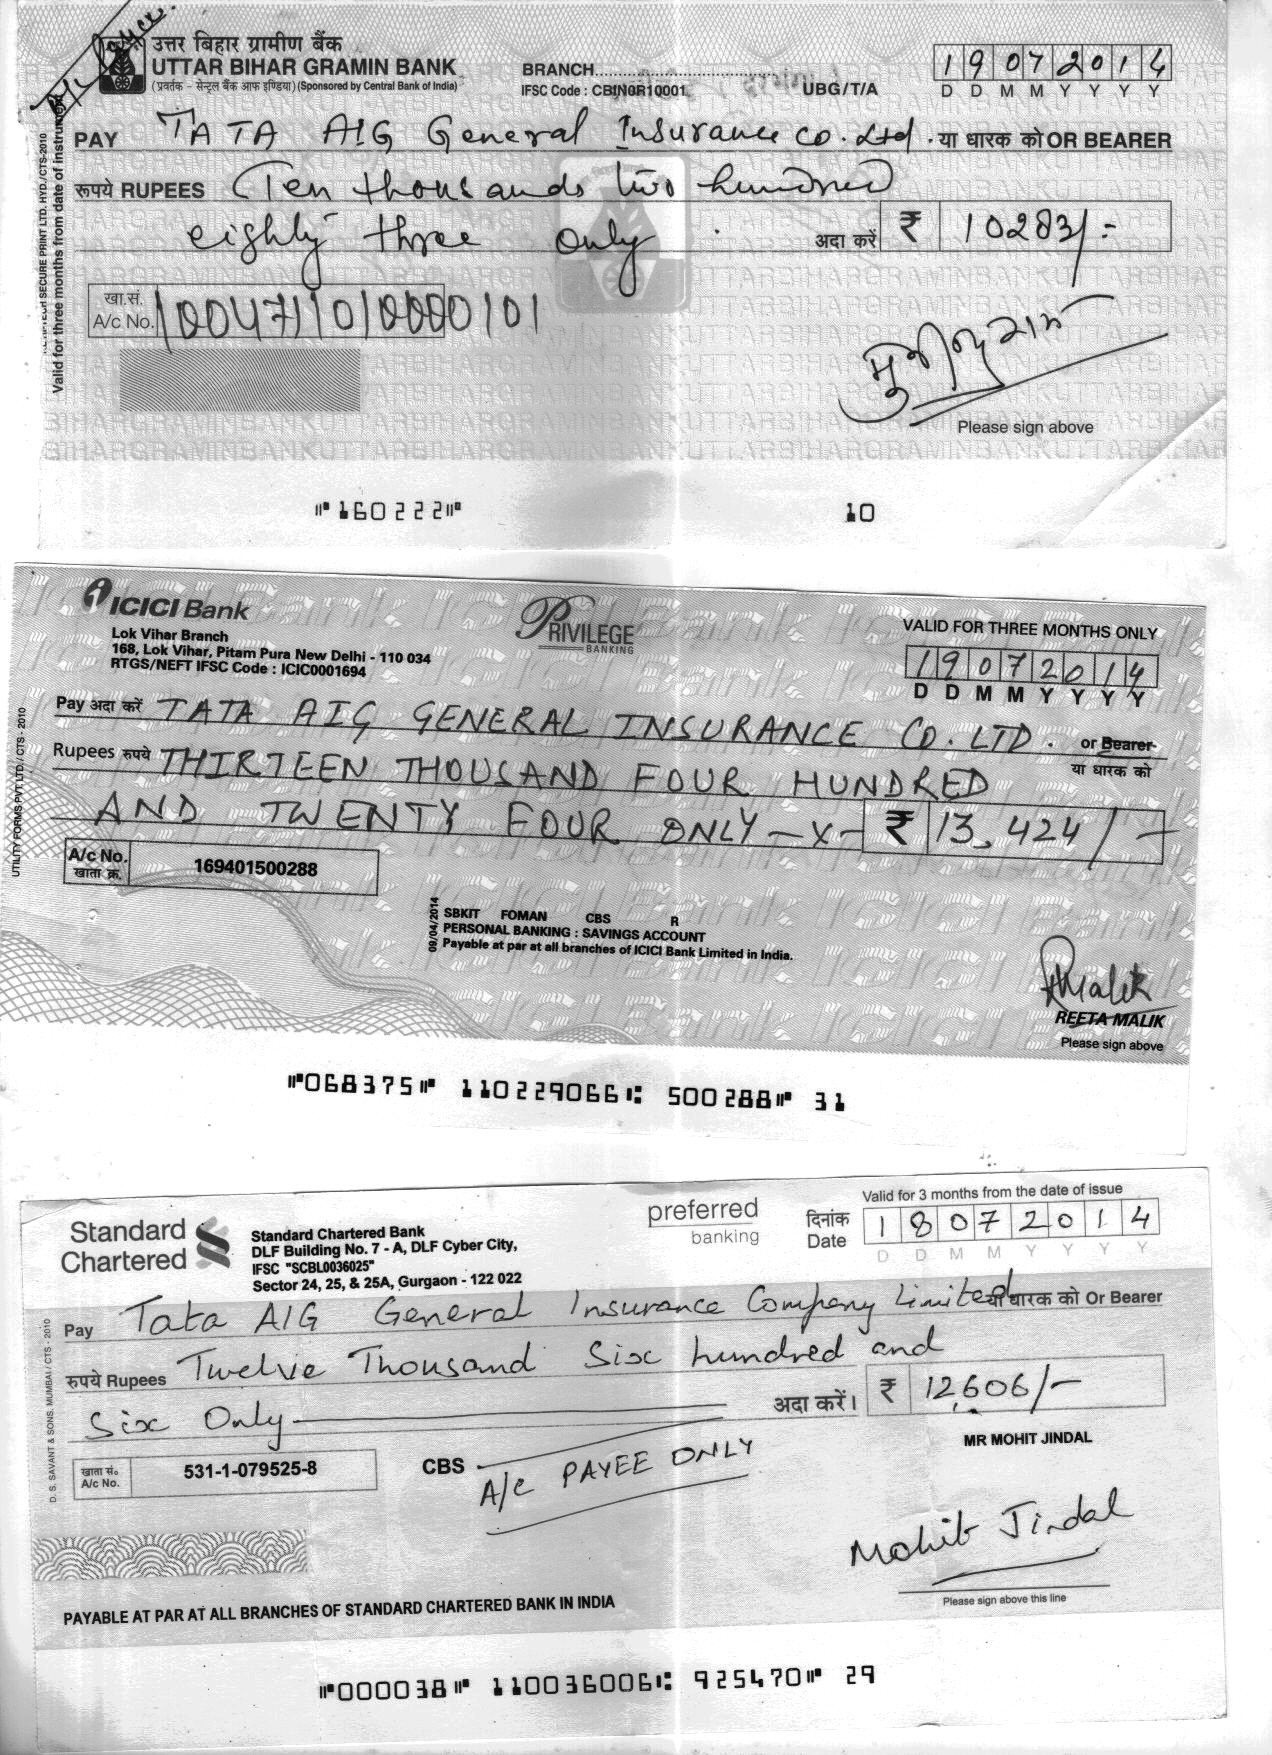 A/c Payee.
उत्तर बिहार ग्रामीण बैंक
UTTAR BIHAR GRAMIN BANK
(प्रवर्तक - सेन्ट्रल बैंक आफ इण्डिया) (Sponsored by Central Bank of India)
BRANCH
IFSC Code : CBIN0R10001 UBG/T/A
19072014
D D M M Y Y Y Y
PAY TATA AIG General Insurance co. Ltd. या धारक को OR BEARER
रूपये RUPEES Ten thousands two hundred
eighty three only
अदा करें ₹ 10283/-
खा.सं.
A/c No. 1004711010000101
Valid for three months from date of instrument
SECURE PRINT LTD. HYD./CTS-2010
Please sign above
⑈160222⑈ 10
ICICI Bank
Lok Vihar Branch
168, Lok Vihar, Pitam Pura New Delhi - 110 034
RTGS/NEFT IFSC Code : ICIC0001694
PRIVILEGE
BANKING
VALID FOR THREE MONTHS ONLY
19072014
D D M M Y Y Y Y
Pay अदा करें TATA AIG GENERAL INSURANCE CO. LTD. or Bearer
या धारक को
Rupees रुपये THIRTEEN THOUSAND FOUR HUNDRED
AND TWENTY FOUR ONLY -x- ₹ 13,424/-
A/c No.
खाता क्र.
169401500288
UTILITY FORMS PVT. LTD. / CTS - 2010
09/04/2014
SBKIT FOMAN CBS R
PERSONAL BANKING : SAVINGS ACCOUNT
Payable at par at all branches of ICICI Bank Limited in India.
RMalik
REETA MALIK
Please sign above
⑈068375⑈ 110229066⑆ 500288⑈ 31
Standard
Chartered
Standard Chartered Bank
DLF Building No. 7 - A, DLF Cyber City,
IFSC "SCBL0036025"
Sector 24, 25, & 25A, Gurgaon - 122 022
preferred
banking
Valid for 3 months from the date of issue
दिनांक
Date
18072014
D D M M Y Y Y Y
Pay Tata AIG General Insurance Company Limited या धारक को Or Bearer
रुपये Rupees Twelve Thousand Six hundred and
Six Only
अदा करें। ₹ 12,606/-
खाता सं.
A/c No.
531-1-079525-8
CBS
A/c PAYEE ONLY
MR MOHIT JINDAL
Mohit Jindal
Please sign above this line
D. S. SAVANT & SONS, MUMBAI / CTS - 2010
PAYABLE AT PAR AT ALL BRANCHES OF STANDARD CHARTERED BANK IN INDIA
⑈000038⑈ 110036006⑆ 925470⑈ 29